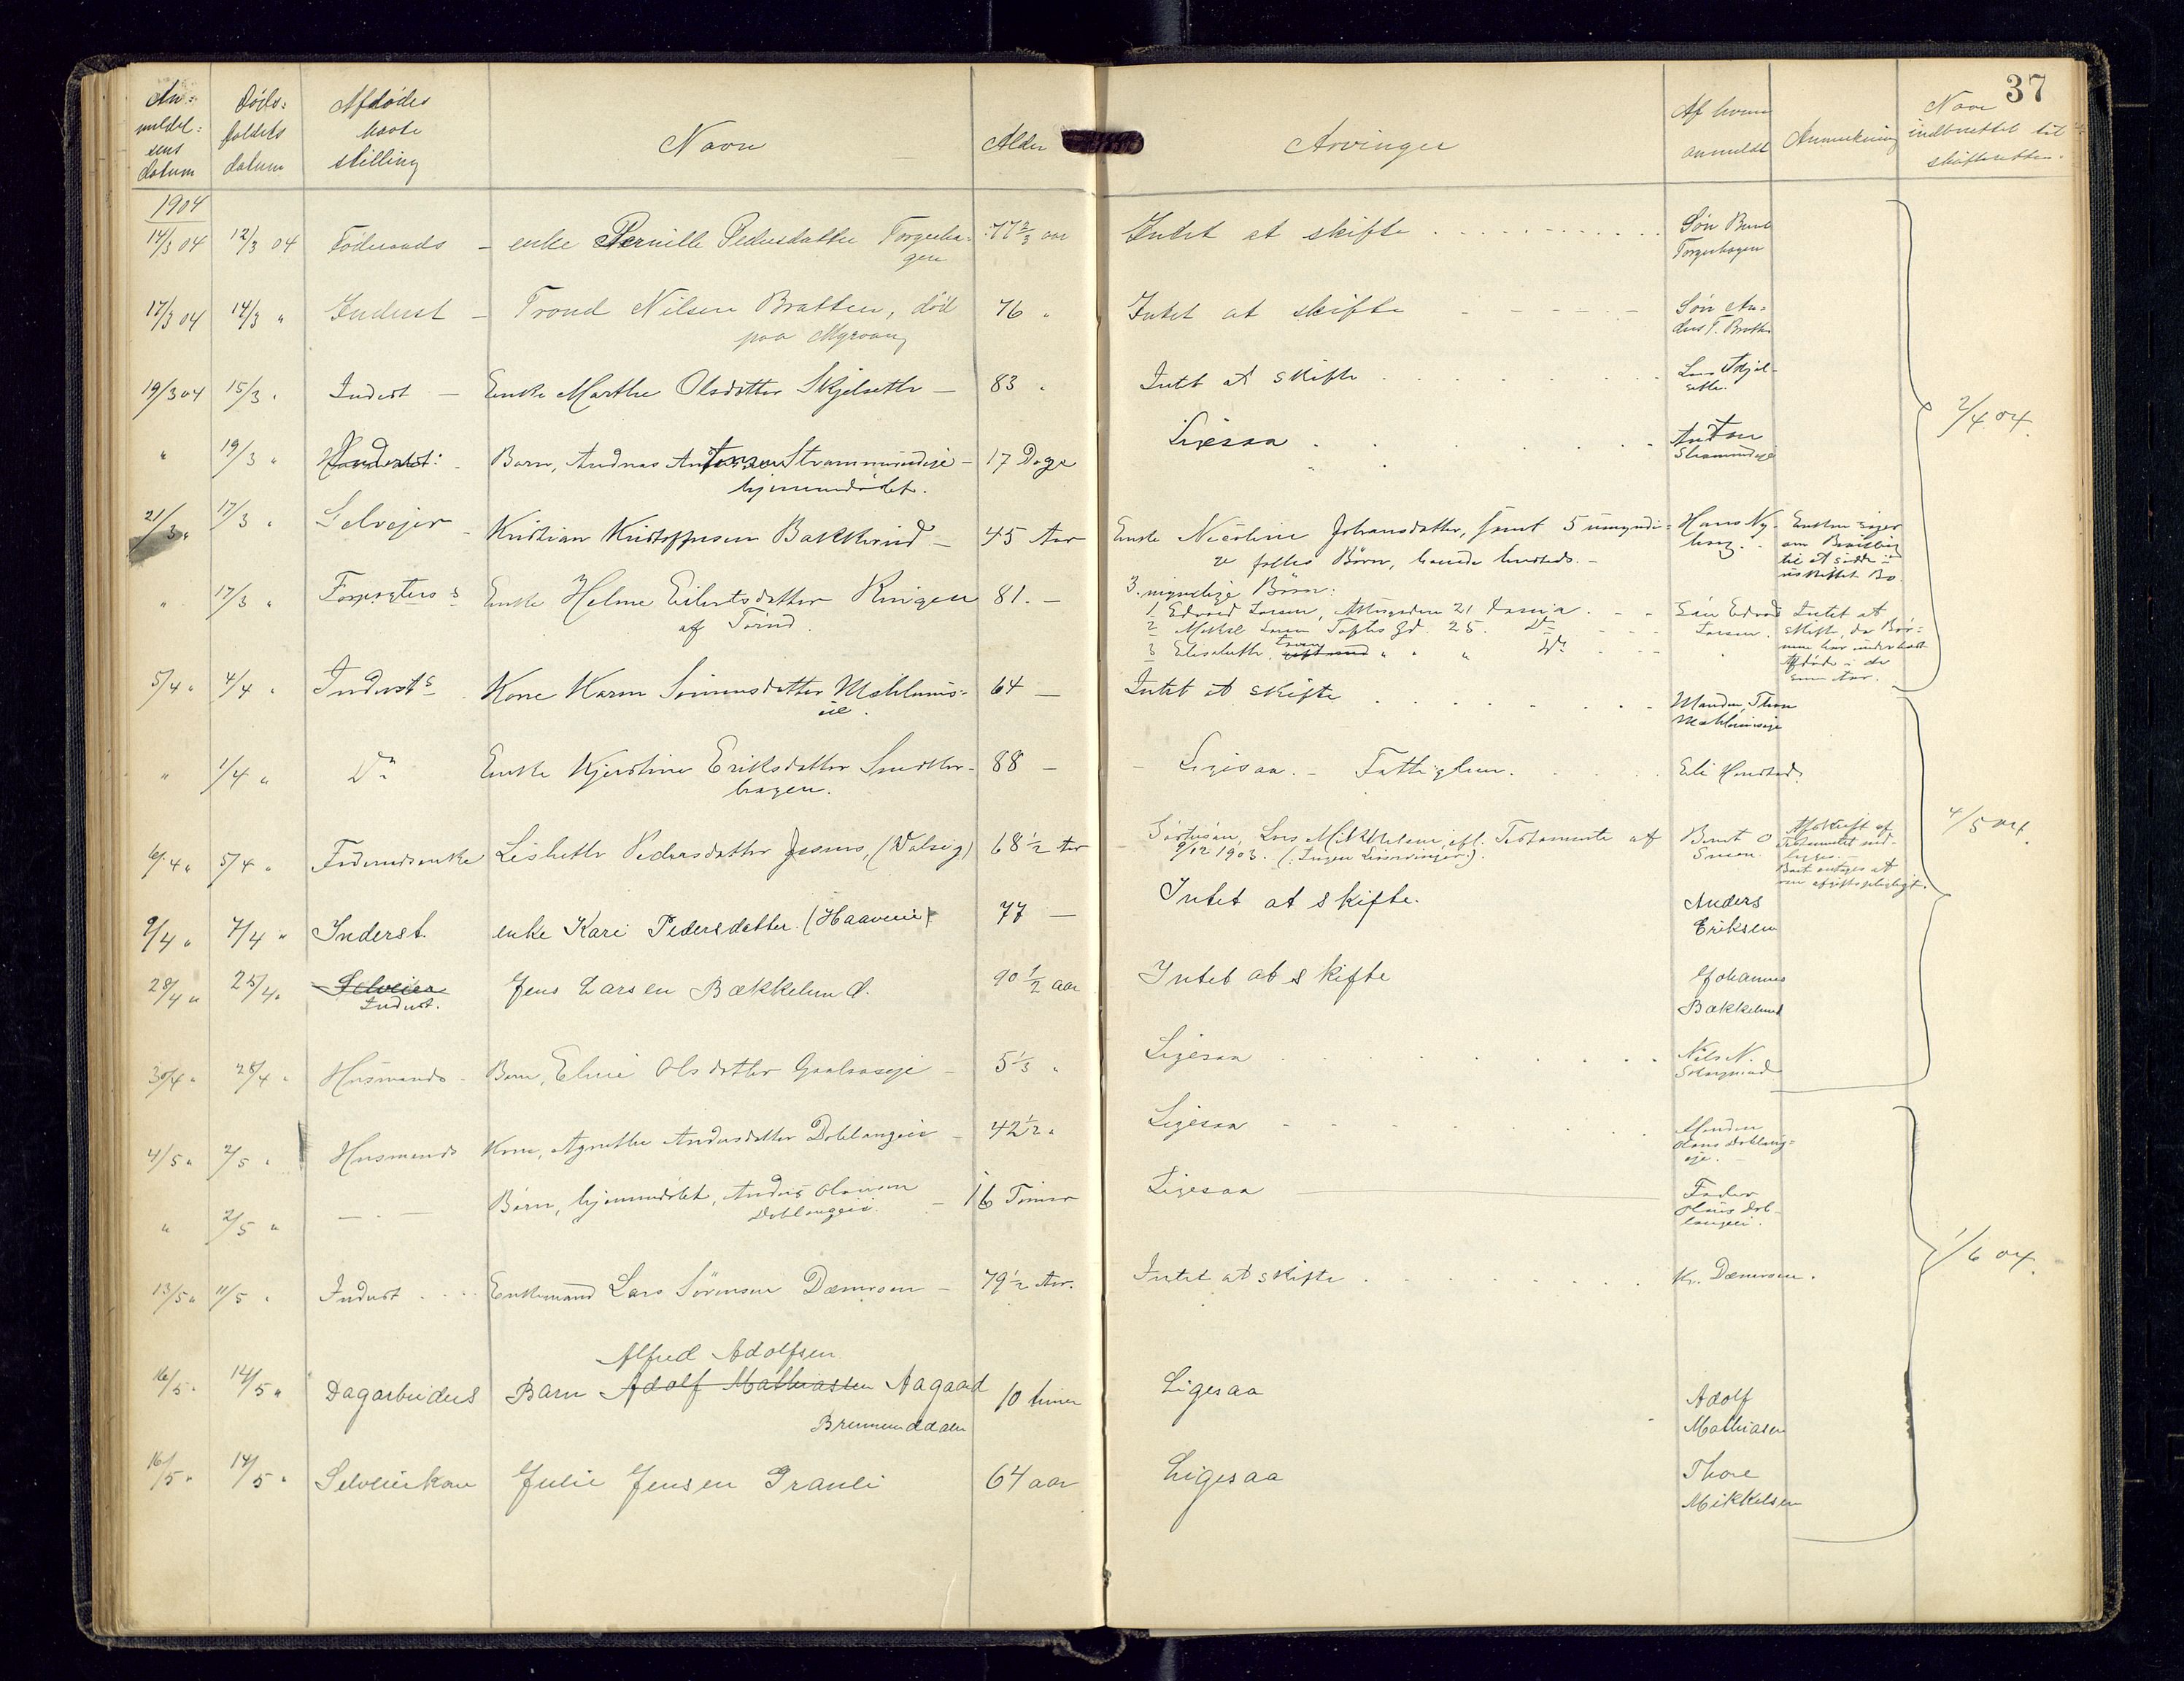 37
An:
meldel:
sens
datum
Døds:
faldets
datum
Afdødes
havte
stilling
Navn
Alder
Arvinger
Af hvem
anmeldt
Anmerkning
Naar
indberettet til
skifteretten.
1904
14/3 04 12/3 04 Föderaads – enke Pernille Pedersdatter Torgerha-
gen
77 2/3 aar Intet at skifte Søn Bernt
Torgerhagen
17/3 04 14/3 " Inderst – Trond Nilsen Bratten, död
paa Myrvang
76 " Intet at skifte Søn An-
ders T. Bratten
19/3 04 15/3 " Inderst – Enke Marthe Olsdatter Skjelseth – 83 " Intet at skifte Lars Skjel-
seth.
" 19/3 " Inderst: Barn, Andreas Antonsen Strømmundeje – 17 Dage Ligesaa Anton
hjemmedøbt.
2/4 04.
21/3 " 17/3 " Selvejer – Kristian Kristoffersen Bakkerud – 45 Aar Enke Nicoline Johansdatter, samt 5 umyndi-
ge fælles Børn,
Hans Ny-
haug.
Enken siger
om Bevilling
til at sidde i
uskiftet Bo.
" 17/3 " Enke Helene Eilertsdatter Ringen
81. – 3 myndige Børn:
1 Edvard Larsen, 21
2 Larsen Toftes Gd. 25. Do
3 Elisabeth " " " Do
Søn Edvard
Larsen.
Intet at
skifte, da Bør-
nene har underholdt
Afdøde i de
senere Aar.
5/4 " 4/4 " Inderst s Kone Karen Simensdatter Mæhlums-
eie.
64 – Intet at skifte Manden, Thore
Mæhlumseje
" 1/4 " Do Enke Kjerstine Eriksdatter Smedker-
hagen.
88 – Ligesaa. – Fattiglem. Eli Honstad.
6/4 " 5/4 " Føderaadsenke Lisbeth Pedersdatter (Dalseg) 68 1/2 Aar Søstersøn, Lars Mikkelsen, efl. Testamente af
9/12 1903. (: Ingen Livsarvinger :).
Bernt O
Afskrift af
Testamentet ved-
lægges. –
Boet antages at
være afgiftspligtigt.
4/5 04.
9/4 " 7/4 " Inderst. enke Kari Pedersdatter. (Haaveeie) 77 – Intet at skifte. Anders
Eriksen
28/4 " 25/4 " Selveier
Inderst.
Jens Larsen Bækkelund. 90 1/2 aar Intet at skifte Johannes
Bækkelund
30/4 " 28/4 " Husmands – Barn, Eline Olsdatter Gaalaaseje – 5 1/3 " Ligesaa Nils N.
4/5 " 2/5 " Husmands Kone, Agnethe Andersdatter Doblangeie – 42 1/2 " Ligesaa Manden
Olaus Doblang-
eje. –
" 2/5 " – " – Barn, hjemmedøbt, Anders Olausen
Doblangeie.
– 16 Timer Ligesaa Fader
Olaus Dob-
langeie.
1/6 04.
13/5 " 11/5 " Inderst Enkemand Lars Sørensen Dæmroen – 79 1/2 Aar. Intet at skifte Kr. Dæmroen.
Alfred Adolfsen
16/5 " 14/5 " Dagarbeiders Barn Adolf Mathiassen Aagaard
Bremunddalen
10 timer Ligesaa Adolf
Mathiasen
16/5 " 14/5 " Selveierkone Julie Jensen Granli 64 aar Ligesaa Thore
Mikkelsen